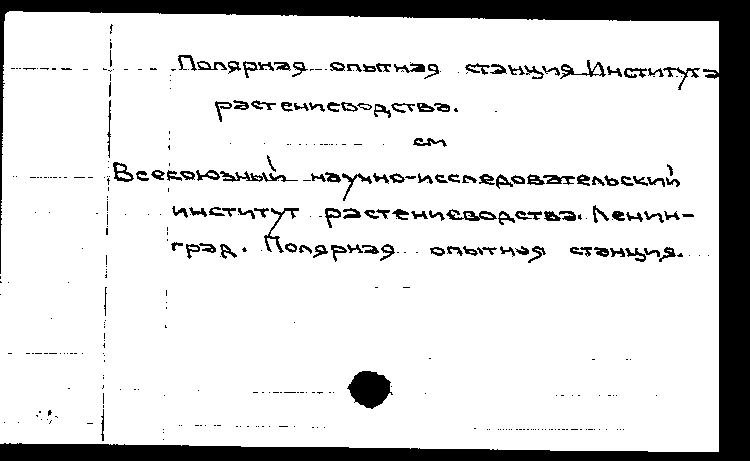 Полярная опытная станция Института
растениеводства.
см
Всесоюзный научно-исследовательский
институт растениеводства. Ленин-
град. Полярная опытная станция.